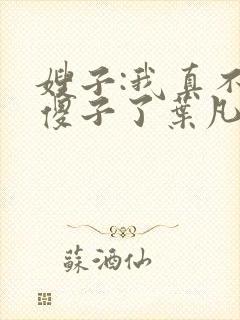 嫂子:我真不
傻子了葉凡
蘇酒仙